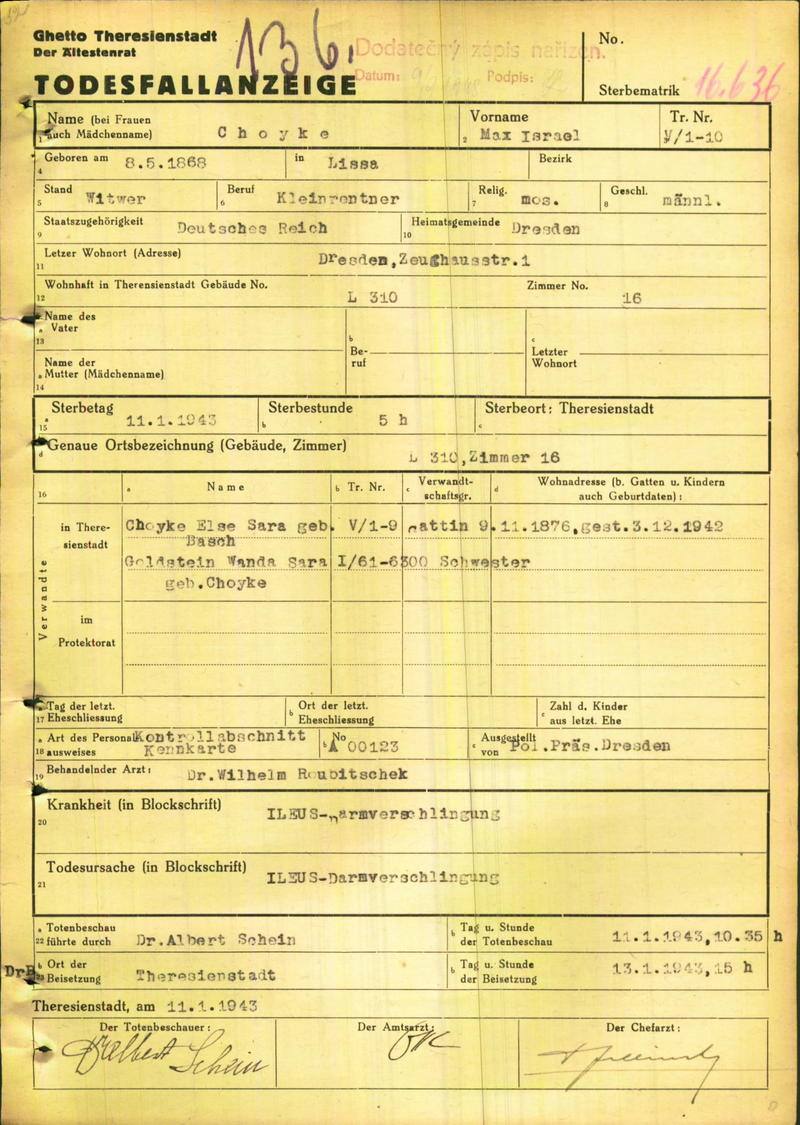 Ghetto Theresienstadt
Der Ältestenrat
TODESFALLANZEIGE
136.
Dodatečný zápis nařízen.
Datum: Podpis:
No.
Sterbematrik 16.636
Name (bei Frauen auch Mädchenname) Choyke
1
Vorname
2 Max Israel
Tr. Nr.
V/1-10
Geboren am 8.5.1868
4
in Lissa
Bezirk
Stand
5 Witwer
Beruf
6 Kleinrentner
Relig.
7 mos.
Geschl.
8 männl.
Staatszugehörigkeit Deutsches Reich
9
Heimatsgemeinde Dresden
10
Letzer Wohnort (Adresse)
11 Dresden,Zeughausstr.1
Wohnhaft in Therensienstadt Gebäude No.
12 L 310
Zimmer No.
16
Name des
a Vater
13
Name der
a Mutter (Mädchenname)
14
b
Be-
ruf
c
Letzter
Wohnort
Sterbetag
a 11.1.1943
15
Sterbestunde
b 5 h
Sterbeort: Theresienstadt
c
Genaue Ortsbezeichnung (Gebäude, Zimmer)
d L 310,Zimmer 16
16
a Name
b Tr. Nr.
c Verwandt-
schaftsgr.
d Wohnadresse (b. Gatten u. Kindern
auch Geburtdaten) :
Verwandte
in There-
sienstadt
Choyke Else Sara geb. V/1-9 Gattin 9.11.1876,gest.3.12.1942
Basch
Goldstein Wanda Sara I/61-6300 Schwester
geb.Choyke
im
Protektorat
a Tag der letzt.
17 Eheschliessung
b Ort der letzt.
Eheschliessung
c Zahl d. Kinder
aus letzt. Ehe
a Art des Personal-
18 ausweises
Kontrollabschnitt
Kennkarte
b No
A 00123
c Ausgestellt
von Pol.Präs.Dresden
Behandelnder Arzt :
19 Dr.Wilhelm Roubitschek
Krankheit (in Blockschrift)
20 ILEUS-Darmverschlingung
Todesursache (in Blockschrift)
21 ILEUS-Darmverschlingung
a Totenbeschau
22 führte durch Dr.Albert Schein
b Tag u. Stunde
der Totenbeschau 11.1.1943,10.35 h
b Ort der
Beisetzung Theresienstadt
b Tag u. Stunde
der Beisetzung 13.1.1943,15 h
Theresienstadt, am 11.1.1943
Der Totenbeschauer :
Dr Albert Schein
Der Amtsarzt :
Der Chefarzt :